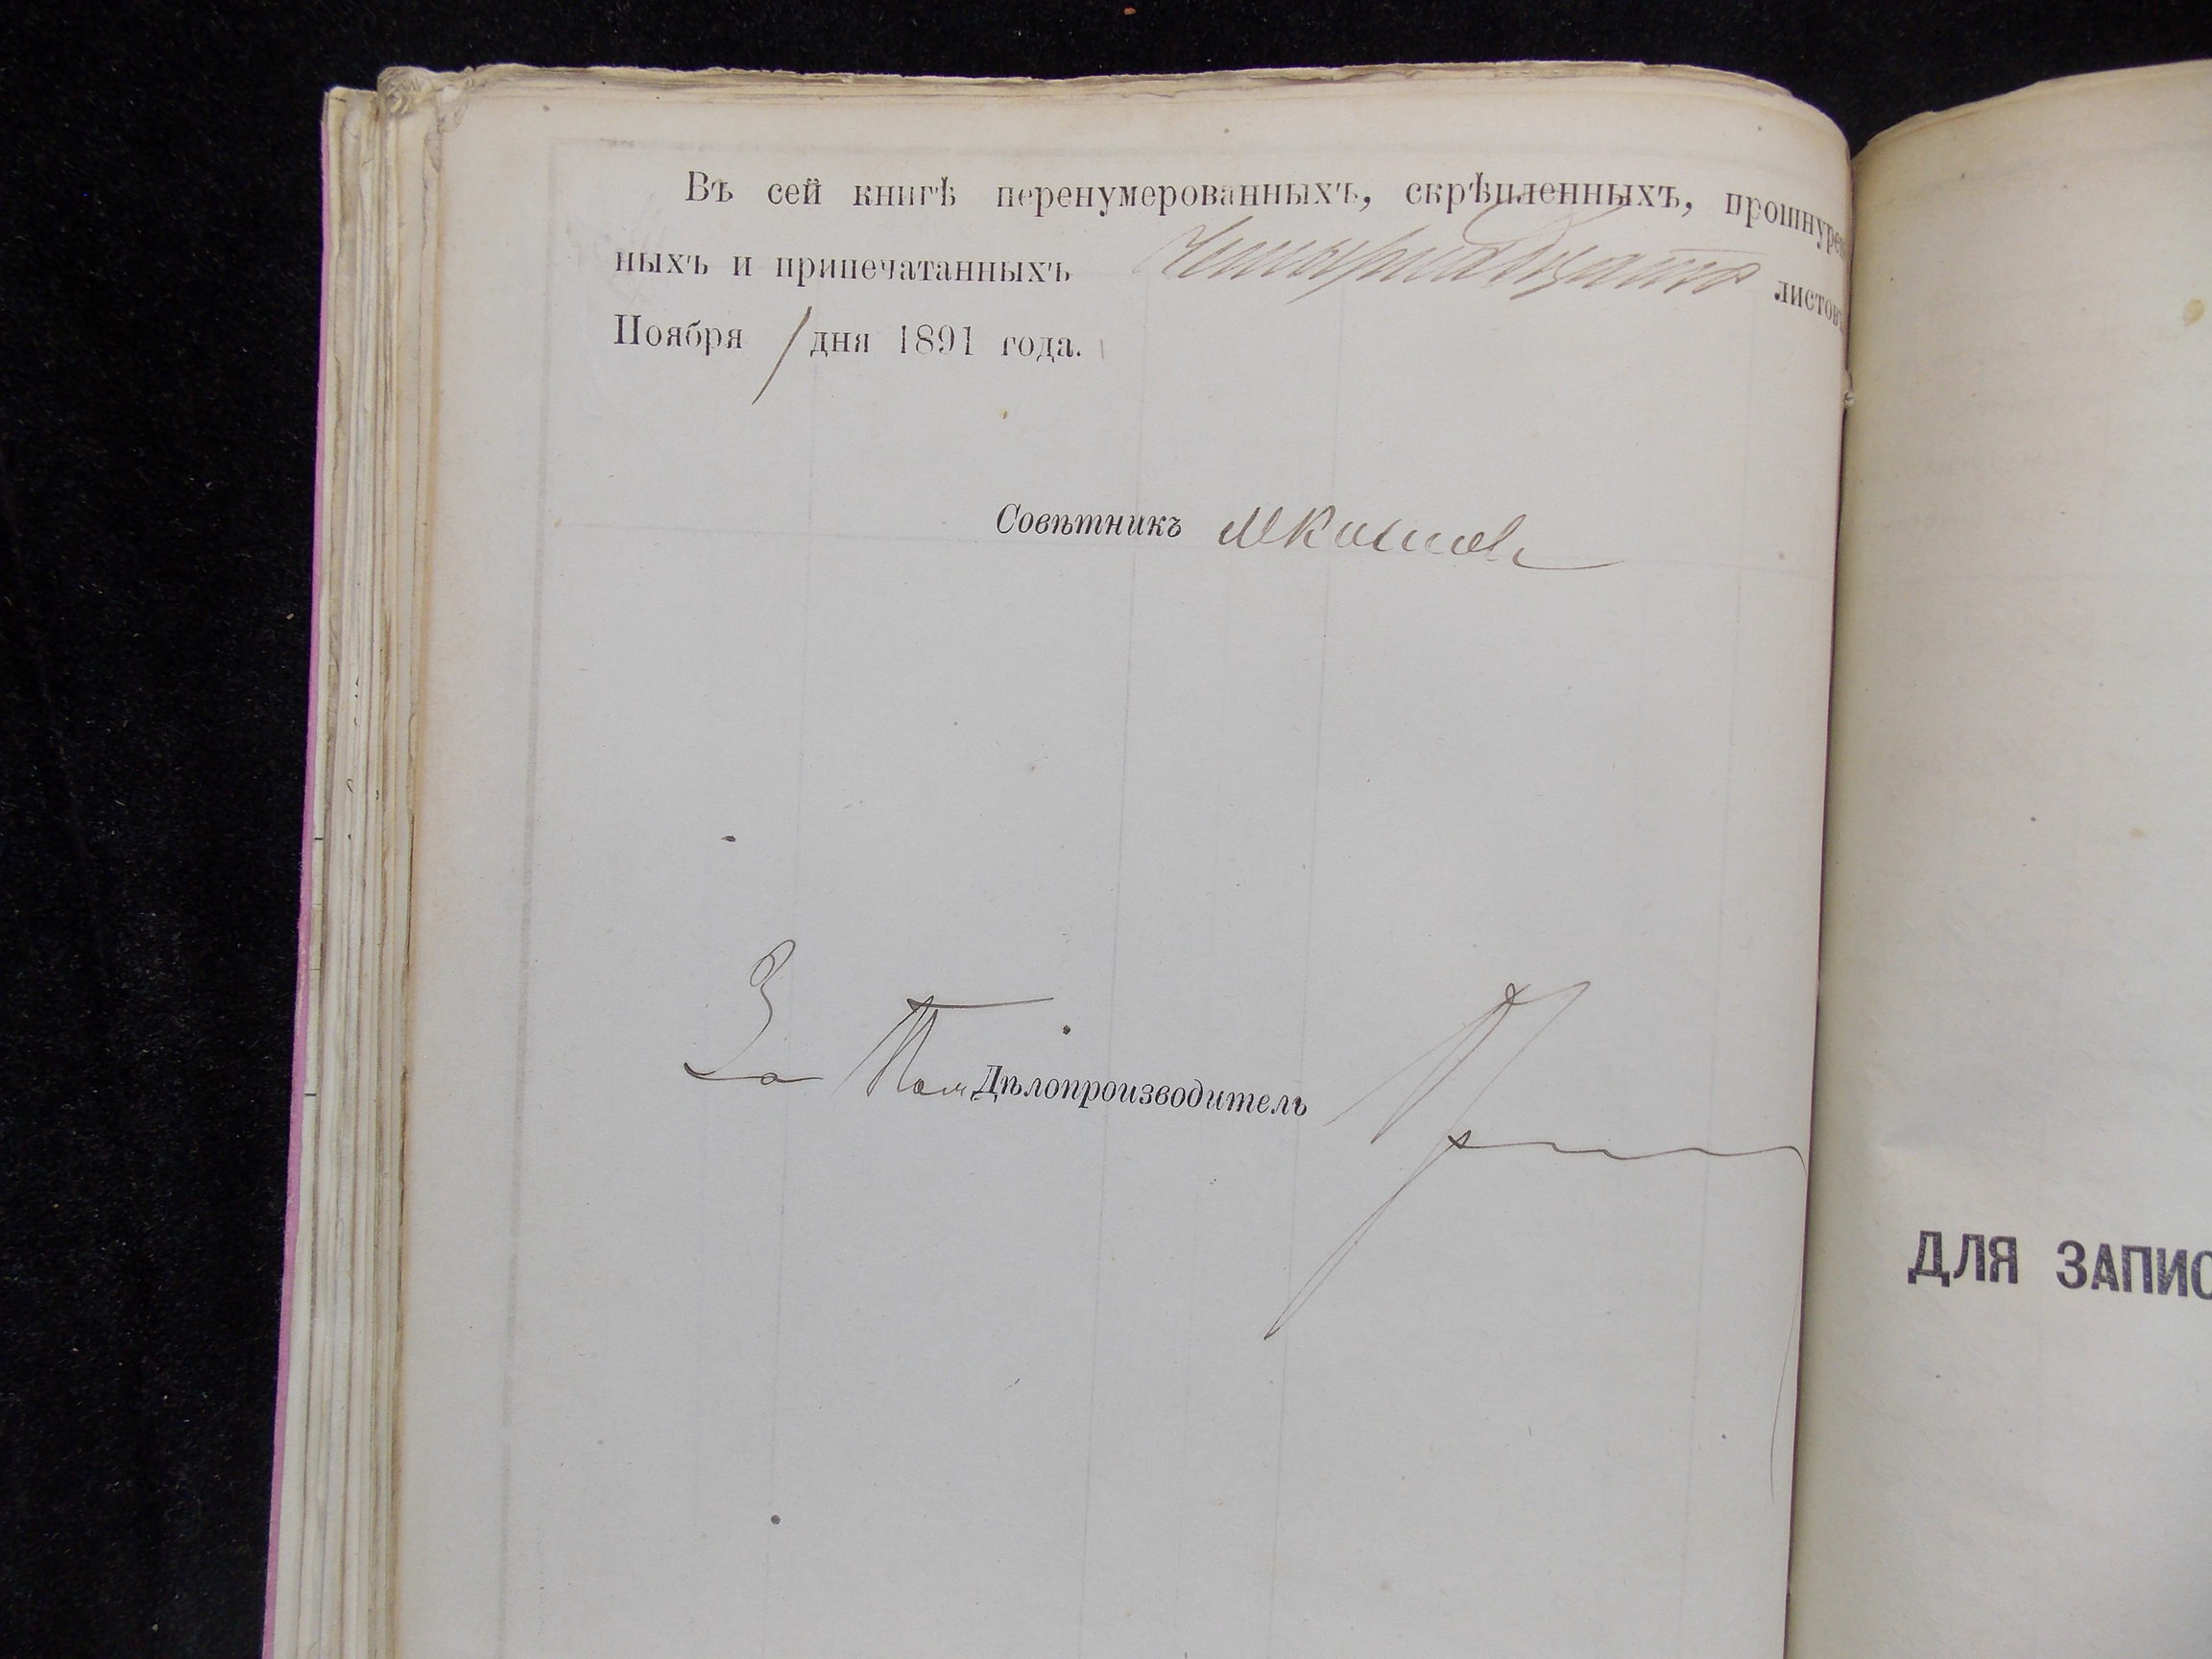 Въ сей книгѣ перенумерованныхъ, скрѣпленныхъ, прошнуре
ныхъ и припечатанныхъ Четырнадцать листовъ
Ноября 1 дня 1891 года.
Совѣтникъ
За Пом. Дѣлопроизводитель
ДЛЯ ЗАПИС